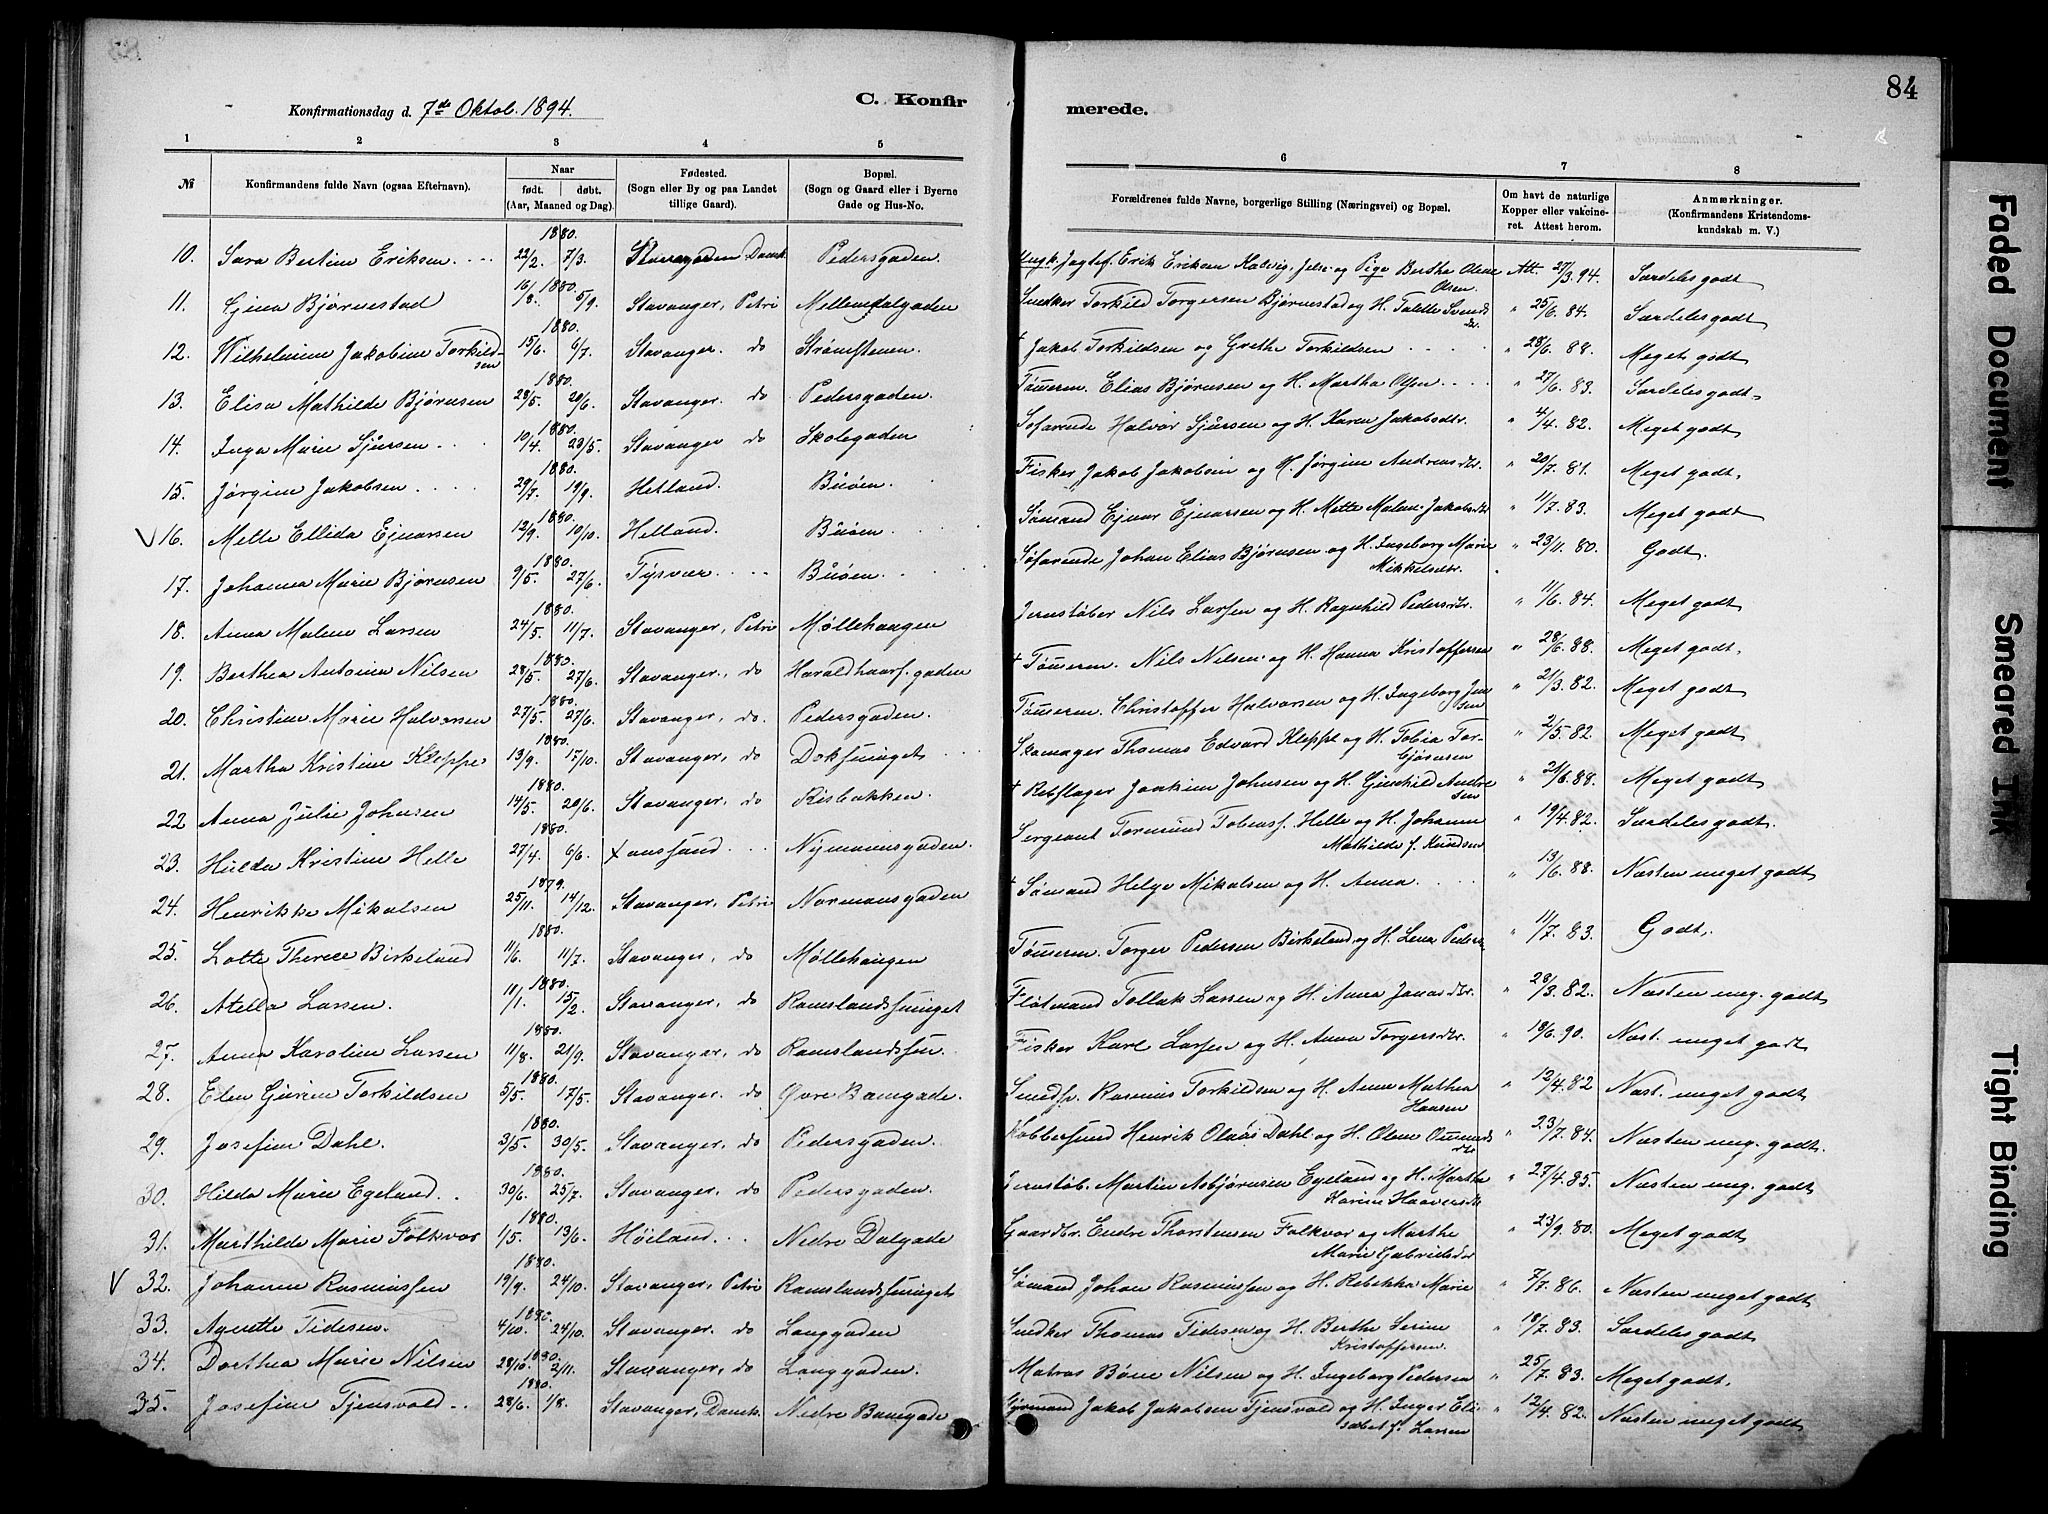 84
Konfirmationsdag d. 7de Oktob. 1894.
C. Konfirmerede.
1 2 3 4 5 6 7 8
№
Konfirmandens fulde Navn (ogsaa Efternavn).
Naar
født. døbt.
(Aar, Maaned og Dag).
Fødested.
(Sogn eller By og paa Landet
tillige Gaard).
Bopæl.
(Sogn og Gaard eller i Byerne
Gade og Hus-No.
Forældrenes fulde Navne, borgerlige Stilling (Næringsvei) og Bopæl.
Om havt de naturlige
Kopper eller vakcine-
ret. Attest herom.
Anmærkninger.
(Konfirmandens Kristendoms-
kundskab m. V.)
10. Sara Bertine Eriksen 1880. 22/2. 7/3. Domk. Pedersgaden. Ungk. Erik Eriksen Pige Berthe Olene Olsen. Att. 27/3.94. Særdeles godt
11. Gjena Bjørnestad 1880. 16/8. 5/9. Stavanger, Petri Mellemdalgaden Snedker Torkild Torgersen Bjørnestad og H. Talette Svends dr. " 25/6.84. Særdeles godt
12. Wilhelmine Jakobine Torkildsen 1880. 15/6. 6/7. Stavanger. do Strømstenen. † Jakob Torkildsen og Grethe Torkildsen " 28/6.88. Meget godt
13. Elisa Mathilde Bjørnsen 1880. 28/5. 20/6. Stavanger. do Pedersgaden. Tømerm. Elias Bjørnsen og H. Martha Olsen " 27/6.83. Særdeles godt
14. Inga Marie Sjursen 1880. 10/4. 23/5. Stavanger do Skolegaden Søfarende Halvor Sjursen og H. Karen Jakobsdtr. " 4/4.82. Meget godt
15. Jørgine Jakobsen 1880. 29/7. 19/9. Hetland. Buøen. Fisker Jakob Jakobsen og H. Jørgine Andreasdtr. " 20/7.81. Meget godt
V 16. Mette Ellida Ejnarsen 1880. 12/9. 10/10. Hetland. Buøen. Sømand Ejnar Ejnarsen og H. Mette Malene Jakobsdtr " 11/7.83. Meget godt
17. Johanna Marie Bjørnsen 1880. 9/5. 27/6. Tysvær. Buøen. Søfarende Johan Elias Bjørnsen og H. Ingeborg Marie Mikkelsdtr. " 23/11.80. Godt.
18. Anna Malene Larsen 1880. 24/5. 11/7. Stavanger, Petri Møllehaugen Jernstøber Nils Larsen og H. Ragnhild Pedersdtr. " 11/6.84. Meget godt
19. Berthea Antonia Nilsen 1880. 28/5. 27/6. Stavanger, do Haraldhaarf. gaden † Tømerm. Nils Nilsen og H. Hanna Kristoffersen " 28/6.88. Meget godt.
20. Christine Marie Halvorsen 1880. 27/5. 27/6. Stavanger, do. Pedersgaden. Tømerm. Christoffer Halvorsen og H. Ingeborg Jensen " 21/3.82. Meget godt
21. Martha Kristine Kleppe 1880. 13/9. 17/10. Stavanger, do Doksmuget Skomager Thomas Edvard Kleppe og H. Tobia Torgjørsen " 2/5.82. Meget godt
22 Anna Julie Johnsen 1880. 14/5. 20/6. Stavanger, do Risbakken. † Rebslager Joakim Johnsen og H. Gunhild Andresen " 21/6.88. Meget godt
23. Hulda Kristine Helle 1880. 27/4. 6/6. Xanssund Nymannsgaden. Sergeant Tormund Tobiasf. Helle og H. Johanne Mathilde f. Knudsen " 19/4.82. Særdeles godt.
24. Henrikke Mikalsen 1879. 25/11. 14/12. Stavanger, Petri Normansgaden † Sømand Helge Mikalsen og H. Anna " 13/6.88. Næsten meget godt
25. Lotte Therese Birkeland 1880. 11/6. 11/7. Stavanger, do Møllehaugen Tømerm. Torger Pedersen Birkeland og H. Lena Peders " 11/7.83. Godt.
26. Atella Larsen. 1880. 11/1. 15/2. Stavanger, do Ramslandsmuget Fløtmand Tollak Larsen og H. Anna Jonasdtr. " 28/3.82. Næsten meg. godt
27. Anna Karoline Larsen 1880. 11/8. 21/9. Stavanger, do Ramslandsmu. Fisker Karl Larsen og H. Anna Torgersdtr. " 19/6.90. Næst. meget godt
28. Elen Gurine Torkildsen 1880. 5/5. 17/5. Stavanger. do Øvre Banegade. Smedsv. Rasmus Torkildsen og H. Anna Mathea Hansen " 12/4.82 Næst. meget godt
29. Josefine Dahl. 1880. 3/5. 30/5. Stavanger, do Pedersgaden. Kobbersmed Henrik Olaus Dahl og H. Olene Osmundsdtr " 23/7.84. Næsten meg. godt.
30. Hilda Marie Egeland. 1880. 30/6. 25/7. Stavanger, do Pedersgaden. Jernstøb. Martin Asbjørnsen Egeland og H. Martha Karine Haaversdtr " 27/4.85. Næsten meg. godt
31. Marthilde Marie Folkvor 1880. 1/5. 13/6. Høiland. Nedre Dalgade Gaardbr. Endre Thorstensen Folkvor og Marthe Marie Gabrielsdtr " 23/9.80. Meget godt
V 32. Johanne Rasmussen 1880. 19/9. 24/10. Stavanger, Petri Ramslandsmuget Sømand Johan Rasmussen og H. Rebekka Marie " 7/7.86. Næsten meget godt
33. Agnette Tidesen. 1880. 4/10. 24/10. Stavanger. do Langgaden Snedker Thomas Tidesen og H. Berthe Serine Kristoffersen. " 18/7.83. Særdeles godt
34. Dorthea Marie Nilsen 1880. 28/10. 2/11. Stavanger, do Langgaden. Matros Børre Nilsen og H. Ingeborg Pedersen " 25/7.83. Meget godt.
35. Josefine Tjensvold 1880. 28/6. 1/8. Stavanger, Domk. Nedre Banegade Styrmand Jakob Jakobsen Tjensvold og H. Inger Elisabet f. Larsen " 12/4.82. Næsten meget godt
Faded Document
Smeared Ink
Tight Binding